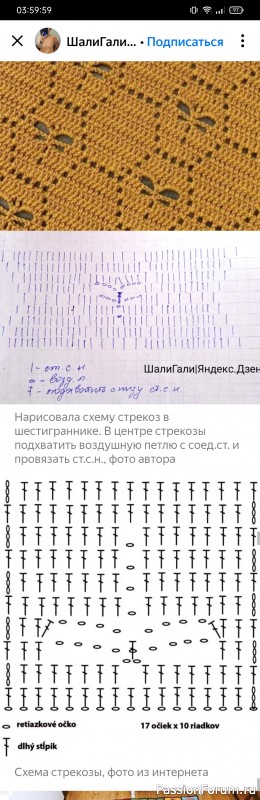 03:59:59
97
ШалиГали... • Подписаться
| - ст. с. н
о - возд. п.
ШалиГали|Яндекс.Дзен
т - подхватить снизу ст. с. н.
Нарисовала схему стрекоз в
шестиграннике. В центре стрекозы
подхватить воздушную петлю с соед.ст. и
провязать ст.с.н., фото автора
retiazkové očko
17 očiek x 10 riadkov
dlhý stĺpik
Схема стрекозы, фото из интернета
PassionForum.ru